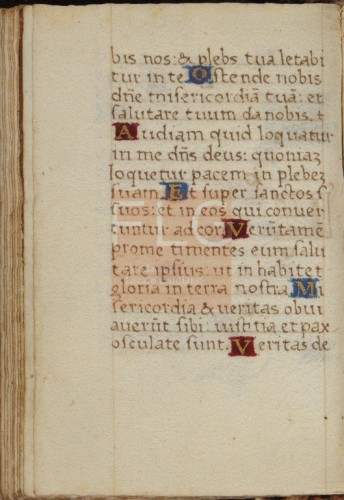 bis nos: & plebs tua letabi
tur in te Ostende nobis
dñe misericordiã tuã: et
salutare tuum da nobis.
Audiam quid loquatur
in me dñs deus: quoniaz
loquetur pacem in plebez
suam. Et super sanctos s
suos: et in eos qui conver
tuntur ad cor. Verũtamẽ
prome timentes eum salu
tare ipsius: ut inhabitet
gloria in terra nostra. Mi
sericordia & veritas obvi
averũt sibi: iustitia et pax
osculate sunt. Veritas de